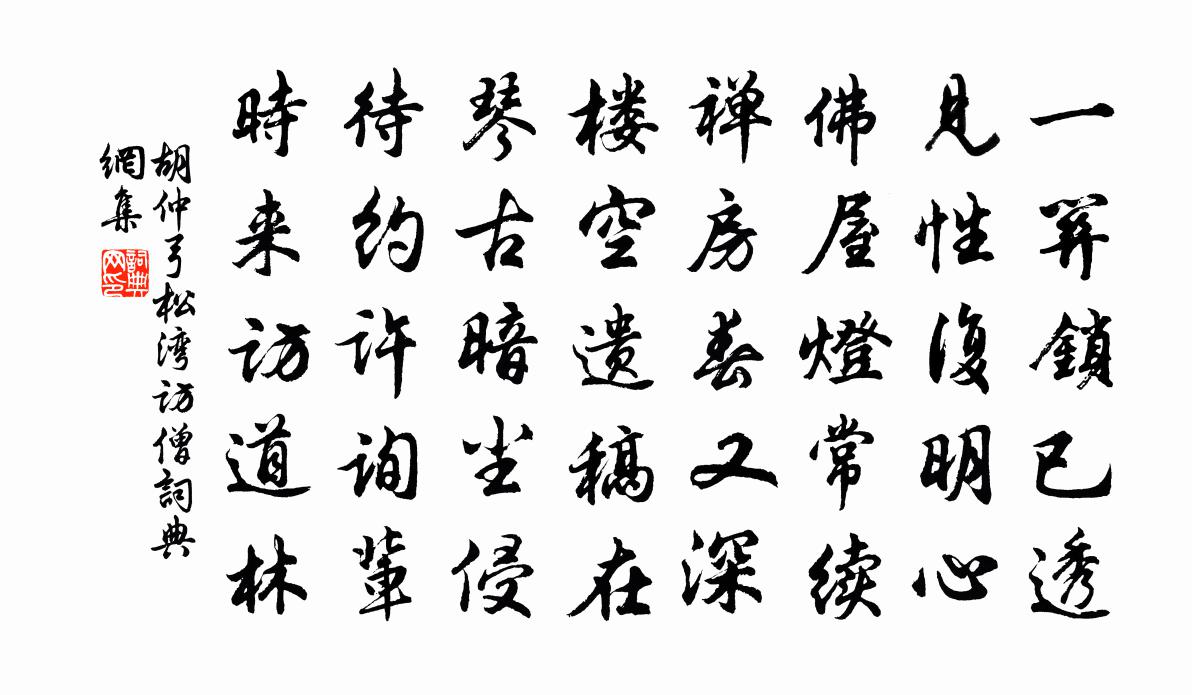 一关鎖已透
見性復明心
佛屋燈常续
禅房春又深
楼空遗稿在
琴古暗尘侵
待约许询輩
時来访道林
胡仲弓松湾访僧詞典
網集
詞典
网印